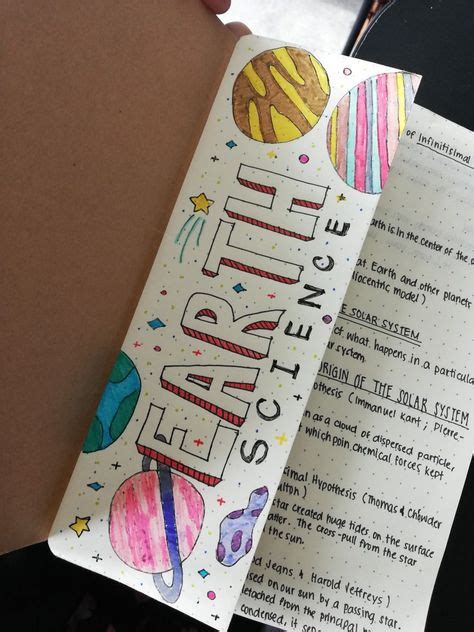 EARTH
SCIENCE
of Infinitisimal
earth is in the center of the
at Earth and other planets
liocentric model)
THE SOLAR SYSTEM
ct what happens in a particular
system.
ORIGIN OF THE SOLAR SYSTEM
pothesis (Immanuel Kant ; Pierre-
n as a cloud of dispersed particle,
t which poin, chemical forces kept
imal Hypothesis (Thomas & Chowder
lton)
star created huge tides on the surface
atter. The cross-pull from the star
the sun.
ld Jeans & Harold Jeffreys)
sed on our sun by a passing star.
detached from the principal
condensed, it sepa